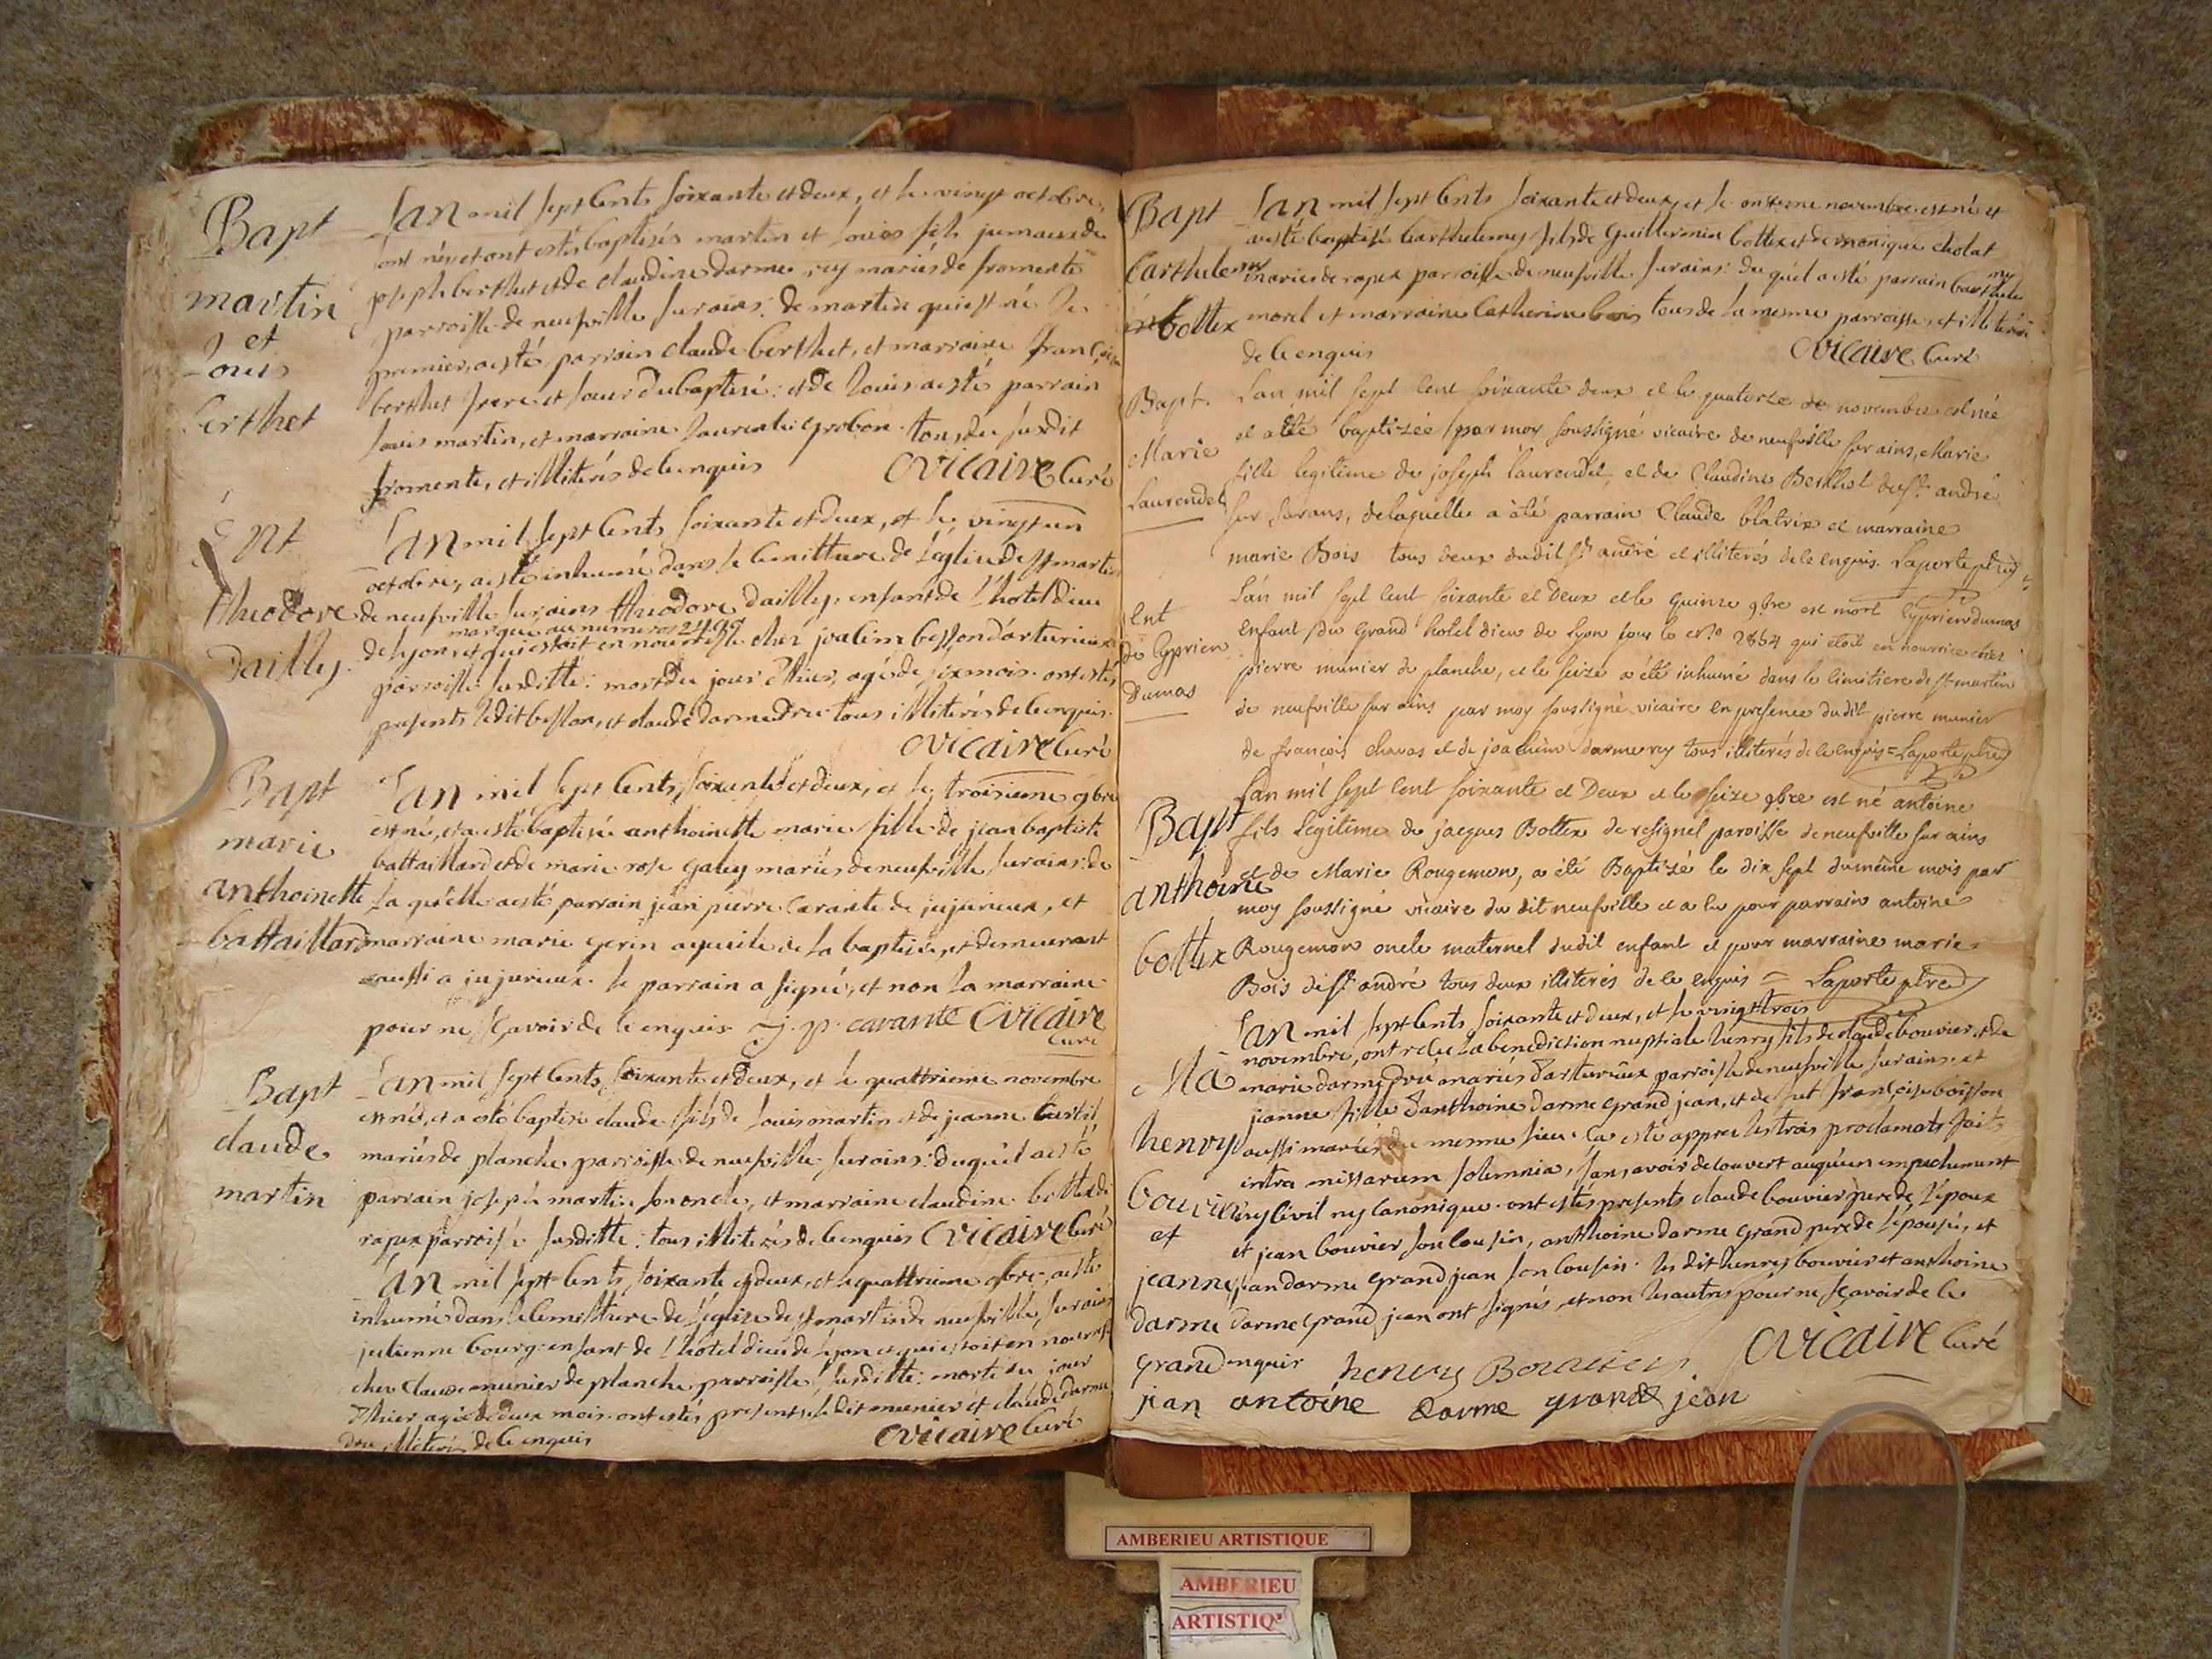 Bapt
martin
et
Louis
berthet
Lan mil sept Cents soixante et deux, et le vingt octobre,
ont nés et ont estés baptisés martin et Louis fils jumaux de
joseph berthet et de claudine darme rey mariés de fromente
parroisse de neufville sur ains: de martin qui est né le
premier, a esté parrain claude berthet, et marraine françoise
berthet frere et soeur du baptisé: et de Louis a esté parrain
Louis martin, et marraine Laurence grobon tous du susdit
fromente, et illiterés de ce enquis Ovicaire Curé
Ent
theodore
dailly
Lan mil sept Cents soixante et deux, et le vingt un
octobre, a esté inhumé dans le Cemittiere de Léglise de st martin
de neufville sur ains theodore dailly, enfant de L'hotel dieu
marqué au numeros 2490
de Lyon, et qui estoit en nourrisse chez joalim besson d'arturieux
parroisse susditte: mort du jour d'hier, agé de six mois. ont estés
presents Ledit besson, et claude darme dru tous illiterés de ce enquis.
Ovicaire Curé
Bapt
marie
anthoinette
battaillard
Lan mil sept Cents, soixante et deux, et le troisieme 9bre
est né, et a esté baptisée anthoinette marie fille de jean baptiste
battaillard et de marie rose galley mariés de neufville sur ains: de
La qu'elle a esté parrain jean pierre Carante de jujurieux, et
marraine marie gerin de la baptisée, et demeurant
aussi a jujurieux. le parrain a signé, et non La marraine
pour ne sçavoir de ce enquis j. p. carante Ovicaire
Curé
Bapt
claude
martin
Lan mil sept Cents, soixante et deux, et le quattrieme novembre
est né, et a esté baptisé claude fils de Louis martin et de jeanne
mariés de planche parroisse de neufville sur ains: duqu'el a esté
parrain joseph martin son oncle, et marraine claudine bottex de
rapex parroisse susditte: tous illiterés de ce enquis Ovicaire Curé
Lan mil sept Cents, soixante et deux, et le quattrieme 9bre, a esté
inhumé dans le Cemittiere de Léglise de st martin de neufville sur ains
julienne bourg enfant de L'hotel dieu de Lyon et qui estoit en nourrisse
chez claude munier de planche parroisse susditte: morte du jour
d'hier agée de deux mois. ont estés presents, le dit munier et claude darme
dru illiterés de ce enquis Ovicaire Curé
Bapt
barthelemy
bottex
Lan mil sept Cents soixante et deux, et le onzieme novembre est né et
a esté baptisé barthelemy fils de Guillermin bottex et de monique cholat
mariés de rapex parroisse de neufville sur ains: du quel a esté parrain barthelemy
morel et marraine Catherine bois tous de la meme parroisse, et illiterés
de Ce enquis Ovicaire Curé
Bapt.
Marie
Laurendel
L'an mil sept cent soixante deux et le quatorze de novembre est née
et a été baptizée par moy soussigné vicaire de neufville sur ains, Marie
fille legitime de joseph Laurendel, et de Claudine Berthet de st. andré
sur Surans, de laquelle a été parrain Claude blatrix et marraine
marie Bois tous deux dudit st andré et illiterés de ce enquis. Laporte ptre
Ent
de Cyprien
Dumas
L'an mil sept cent soixante et Deux et le quinze 9bre est mort Cyprien dumas
enfant du grand hotel dieu de Lyon sous le No 2854 qui étoit en nourrice chez
pierre munier de planche, et le seize a été inhumé dans le cimitiere de st martin
de neufville sur ains par moy soussigné vicaire en presence dudit pierre munier
de françois chavas et de joachim darme rey tous illiterés de ce enquis = Laporte ptre
Bapt
anthoine
bottex
L'an mil sept cent soixante et Deux et le seize 9bre est né antoine
fils Legitime de jacques Bottex de resignel paroisse de neufville sur ains
et de Marie Rougemon, a été Baptizé le dix sept du même mois par
moy soussigné vicaire du dit neufville et a eu pour parrain antoine
Rougemon oncle maternel dudit enfant et pour marraine marie
Bois de st. andré tous deux illiterés de ce enquis = Laporte ptre
Ma
henry
bouvier
et
jeanne
darme
grand
jean
Lan mil sept Cents soixante et deux, et le vingt trois
novembre, ont reçu La benediction nuptiale henry fils de claude bouvier et de
marie darme dru mariés d'arturieux parroisse de neufville sur ains: et
jeanne fille d'anthoine darme grand jean, et de fut françoise boisson
aussi mariés du mesme Lieu. Ca esté apprés Les trois proclamats faits
intra missarum solemnia, sans avoir decouvert auqu'un empechement
ny Civil ny Canonique. ont estés presents claude bouvier pere de L'époux
et jean bouvier son Cousin, anthoine darme grand pere de L'épouse, et
jean darme grand jean son Cousin. Les dit henry bouvier et anthoine
darme grand jean ont signés, et non Les autres pour ne sçavoir de Ce
enquis henry Bouvier Ovicaire Curé
antoine darme grand jean
AMBERIEU ARTISTIQUE
AMBERIEU
ARTISTIQ